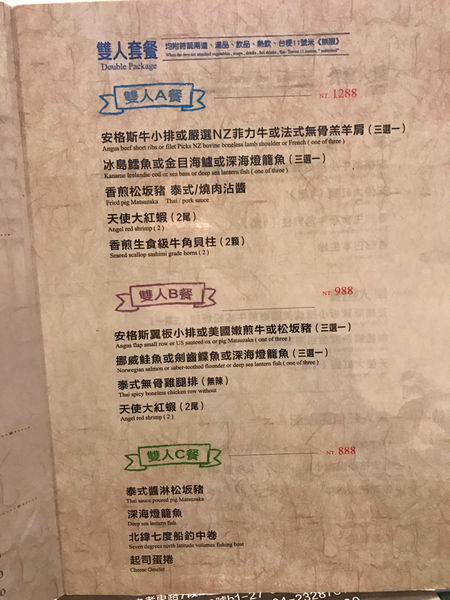 雙人套餐 均附時蔬兩道、湯品、飲品、熱飲、台梗11號米《無限》
Double Package
雙人A餐 NT. 1288
安格斯牛小排或嚴選NZ菲力牛或法式無骨羔羊肩（三選一）
Angus beef short ribs or filet Picks NZ bovine boneless lamb shoulder or French ( one of three )
冰島鱈魚或金目海鱸或深海燈籠魚（三選一）
Kaname Icelandic cod or sea bass or deep sea lantern fish ( one of three )
香煎松坂豬 泰式/燒肉沾醬
Fried pig Matsuzaka Thai / pork sauce
天使大紅蝦（2尾）
Angel red shrimp ( 2 )
香煎生食級牛角貝柱（2顆）
Seared scallop sashimi grade horns ( 2 )
雙人B餐 NT. 988
安格斯翼板小排或美國嫩煎牛或松坂豬（三選一）
Angus flap small row or US sauteed ox or pig Matsuzaka ( one of three )
挪威鮭魚或劍齒鰈魚或深海燈籠魚（三選一）
Norwegian salmon or saber-toothed flounder or deep sea lantern fish ( one of three )
泰式無骨雞腿排（無辣）
Thai spicy boneless chicken row without
天使大紅蝦（2尾）
Angel red shrimp ( 2 )
雙人C餐 NT. 888
泰式醬淋松坂豬
Thai sauce poured pig Matsuzaka
深海燈籠魚
Deep sea lantern fish
北緯七度船釣中卷
Seven degrees north latitude volumes fishing boat
起司蛋捲
Cheese Omelet